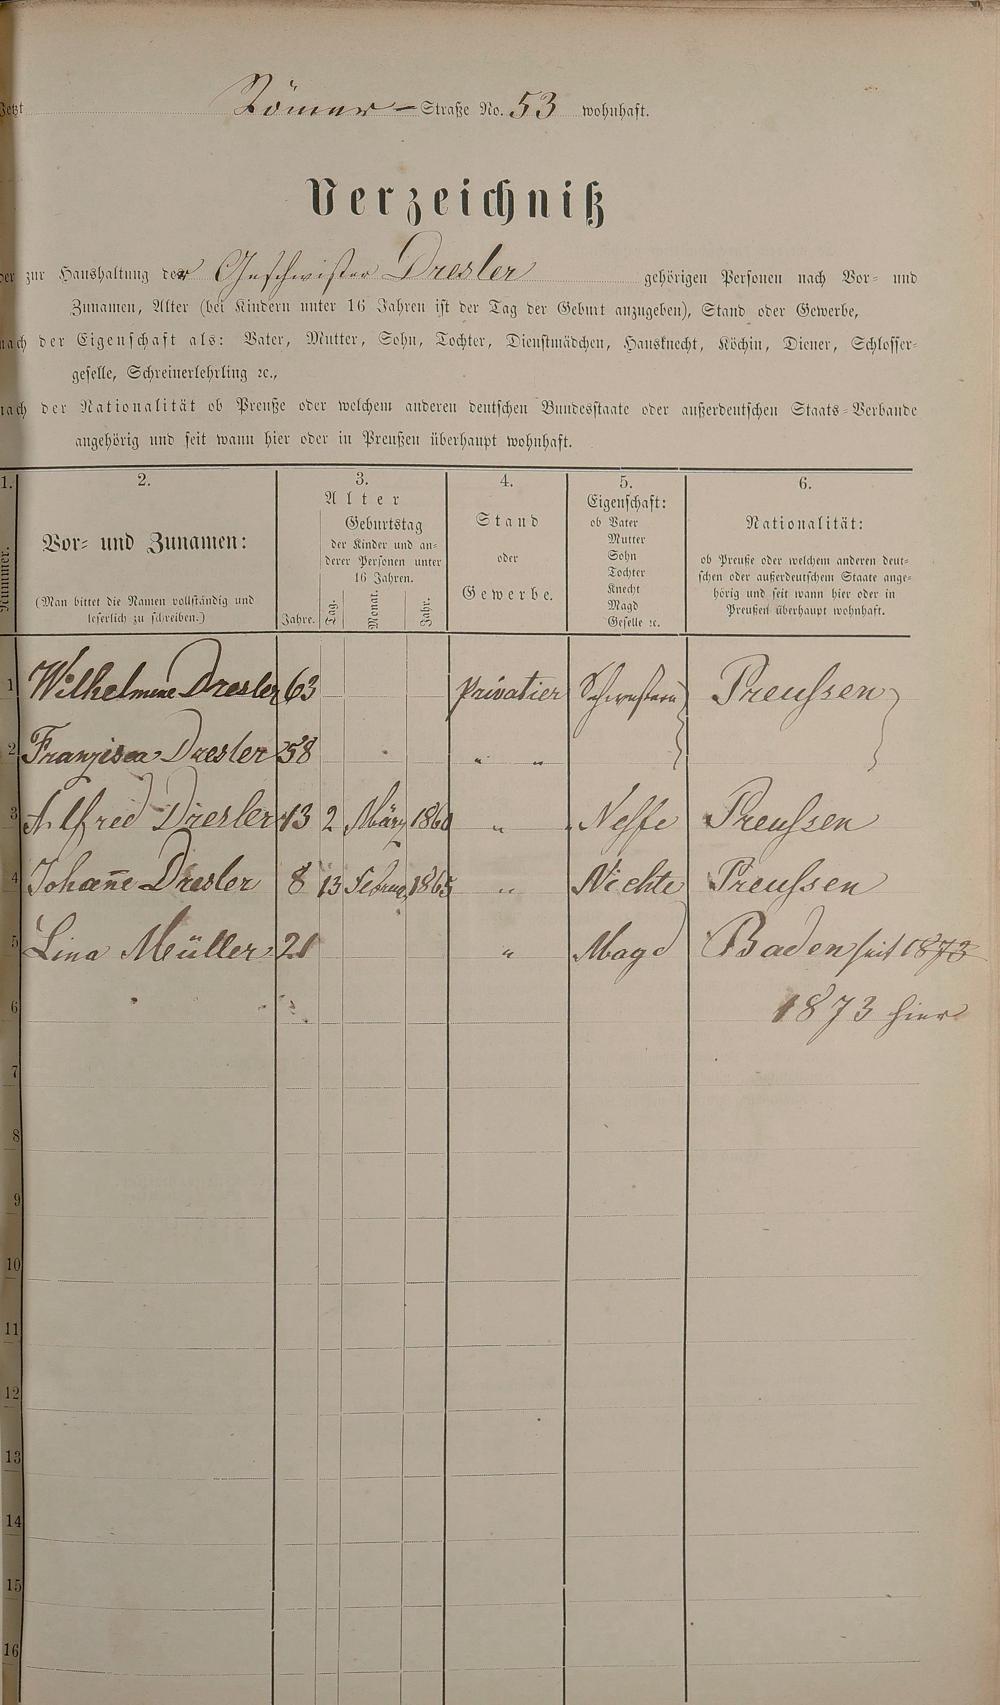 Jetzt Römer-Straße No. 53 wohnhaft.
Verzeichniß
der zur Haushaltung der Geschwister Dresler gehörigen Personen nach Vor- und
Zunamen, Alter (bei Kindern unter 16 Jahren ist der Tag der Geburt anzugeben), Stand oder Gewerbe,
nach der Eigenschaft als: Vater, Mutter, Sohn, Tochter, Dienstmädchen, Hausknecht, Köchin, Diener, Schlosser-
geselle, Schreinerlehrling ꝛc.,
nach der Nationalität ob Preuße oder welchem anderen deutschen Bundesstaate oder außerdeutschen Staats-Verbande
angehörig und seit wann hier oder in Preußen überhaupt wohnhaft.
1. 2. 3. 4. 5. 6.
Nummer.
Vor- und Zunamen:
(Man bittet die Namen vollständig und
leserlich zu schreiben.)
Alter
Geburtstag
der Kinder und an-
derer Personen unter
16 Jahren.
Jahre. Tag. Monat. Jahr.
Stand
oder
Gewerbe.
Eigenschaft:
ob Vater
Mutter
Sohn
Tochter
Knecht
Magd
Geselle ꝛc.
Nationalität:
ob Preuße oder welchem anderen deut-
schen oder außerdeutschem Staate ange-
hörig und seit wann hier oder in
Preußen überhaupt wohnhaft.
1 Wilhelmine Dresler 63 Privatier Schwestern Preussen
2 Franzisca Dresler 58 " "
3 Alfred Dresler 13 2 März 1860 " Neffe Preussen
4 Johan̄e Dresler 8 13 Februar 1865 " Nichte Preussen
5 Lina Müller 21 " Magd Baden seit 1873
6 1873 hier
7
8
9
10
11
12
13
14
15
16